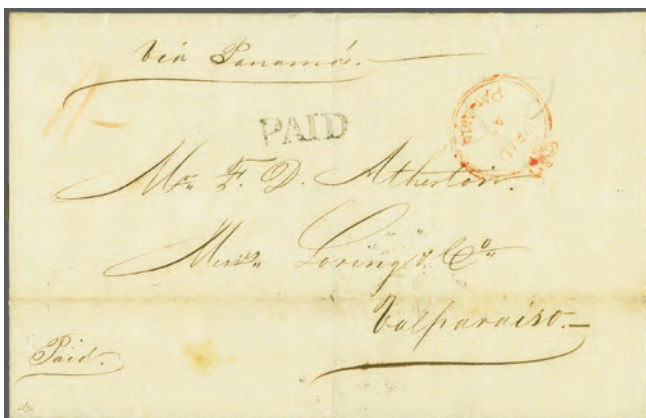 Via Panamá.
PAID
PAID
Mr. F. D. Atherton.
Messrs. Loring & Co.
Valparaiso.—
Paid.